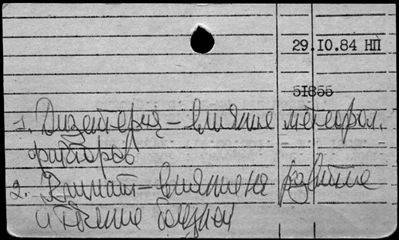 29.10.84 НП
51855
1. Дизентерия – влияние метеорол.
факторов
2. Климат – влияние на развитие
и течение болезней